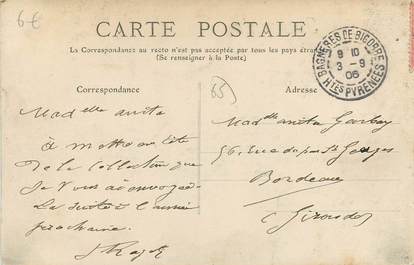 6€
CARTE POSTALE
La Correspondance au recto n'est pas acceptée par tous les pays étran
(Se renseigner à la Poste)
BAGNÈRES DE BIGORRE
9 10
3 - 9
06
Htes PYRÉNÉES
Correspondance
Adresse
65
Madelle anita
à mettre
de la collection que
Je vous ai envoyé
La suite à l'année
prochaine.
Madelle anita
56, rue
Bordeaux
Gironde